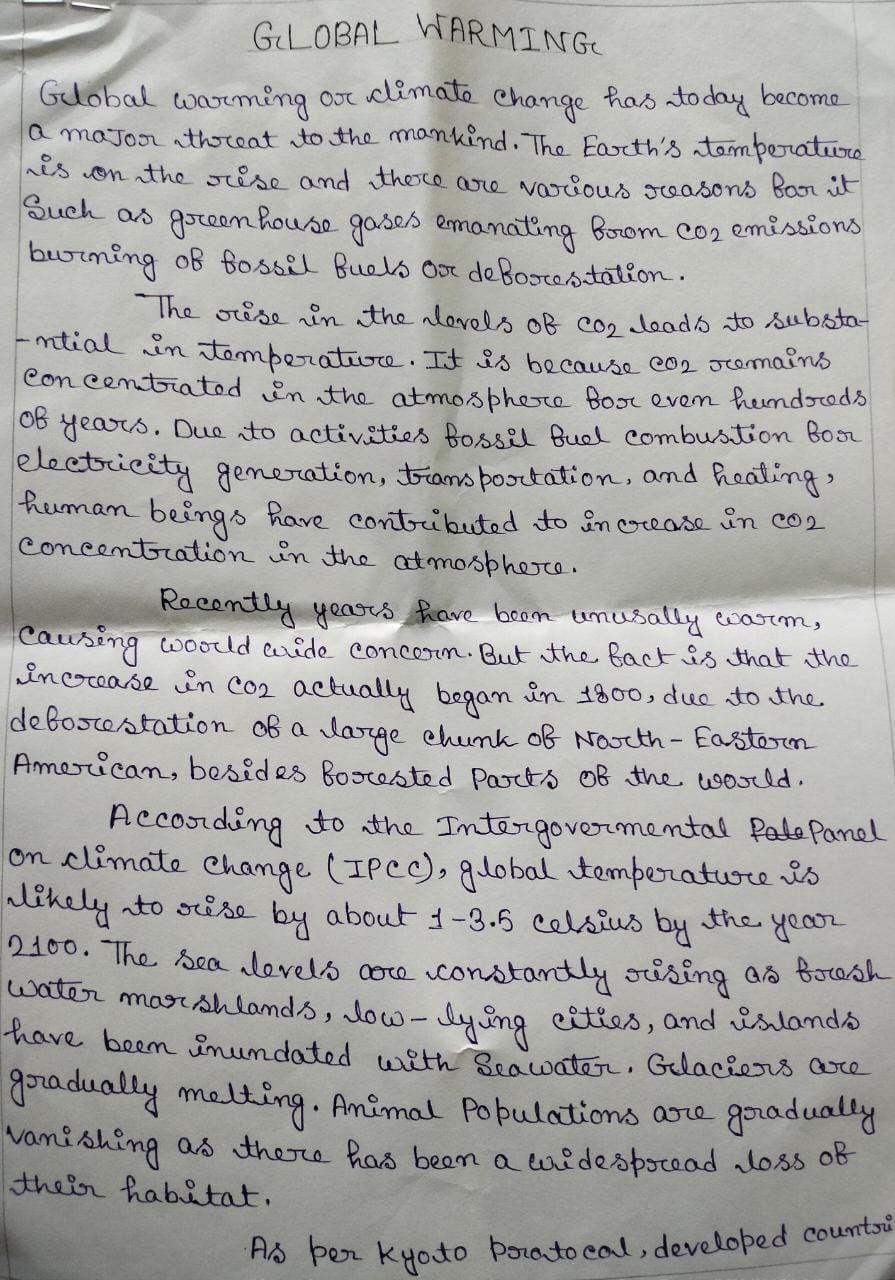 GLOBAL WARMING
Global warming or climate change has today become
a major threat to the mankind. The Earth's temperature
is on the rise and there are various reasons for it
Such as greenhouse gases emanating from CO2 emissions
burning of fossil fuels or deforestation.
The rise in the levels of CO2 leads to substa-
-ntial in temperature. It is because CO2 remains
concentrated in the atmosphere for even hundreds
of years. Due to activities fossil fuel combustion for
electricity generation, transportation, and heating,
human beings have contributed to increase in CO2
concentration in the atmosphere.
Recently years have been unusally warm,
causing world wide concern. But the fact is that the
increase in CO2 actually began in 1800, due to the
deforestation of a large chunk of North-Eastern
American, besides forested parts of the world.
According to the Intergovermental Panel
on climate change (IPCC), global temperature is
likely to rise by about 1-3.5 celsius by the year
2100. The sea levels are constantly rising as fresh
water marshlands, low-lying cities, and islands
have been inundated with seawater. Glaciers are
gradually melting. Animal Populations are gradually
vanishing as there has been a widespread loss of
their habitat.
As per Kyoto Poratocol, developed countri